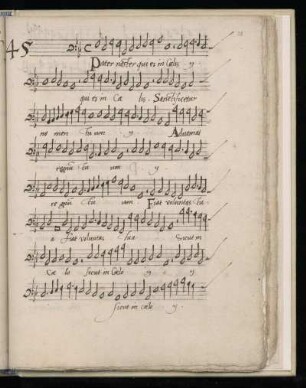 45
Pater noster qui es in Cælis y
qui es in Cæ lis. Sanctificetur
no men tuum y Adveniat
regnũ tu um y
regnũ tu um Fiat voluntas tu
a Fiat voluntas tua Sicut in
Cæ lo sicut in Cælo y y
sicut in cælo y.